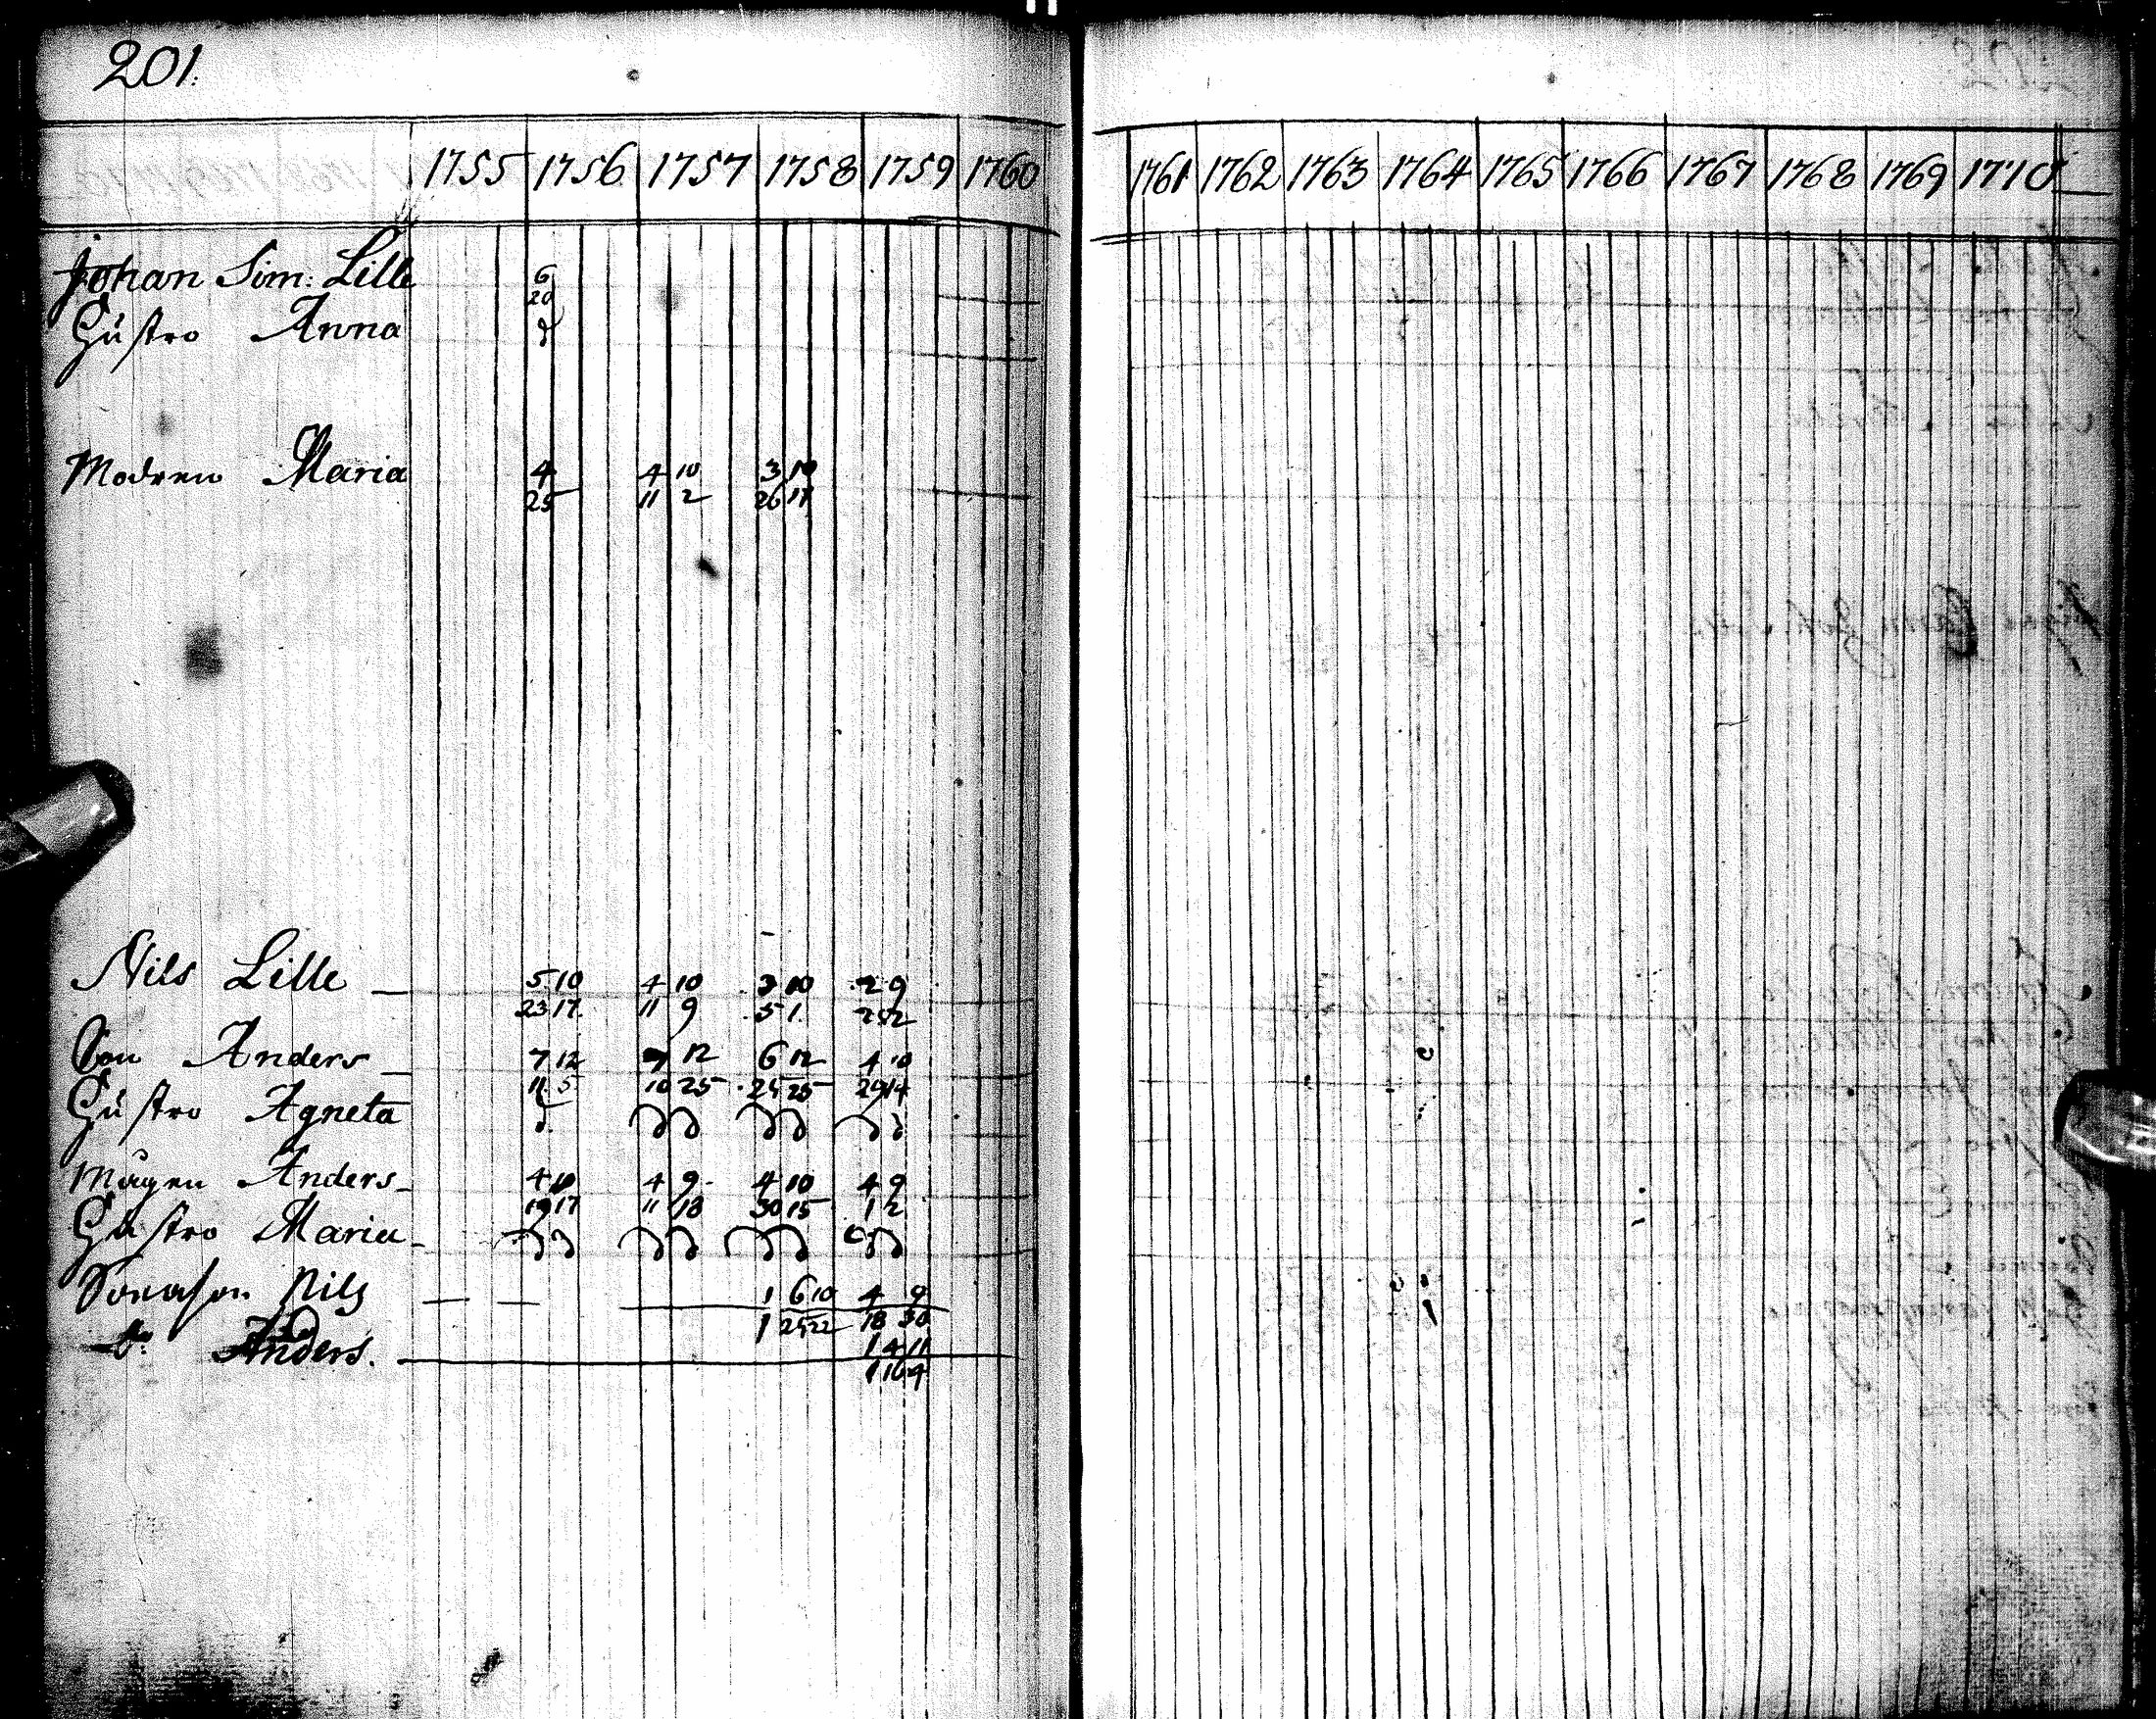 201.
1755 1756 1757 1758 1759 1760 1761 1762 1763 1764 1765 1766 1767 1768 1769 1770
Johan Sim: Lille 6
20
Hustro Anna
Modren Maria 4 4 10 3 10
25 11 2 26 17
Nils Lille 5 10 4 10 3 10 2 9
23 17 11 9 5 1. 25 2
Son Anders 7 12 7 12 6 12 4 10
11 5 10 25 25 25 29 14
Hustro Agneta
Mågen Anders 4 10 4 9 4 10 4 9
19 17 11 18 30 15 1 2
Hustro Maria
Sonason Nils 1 6 10 4 9
1 25 22 18 30
do Anders. 1 4 11
1 16 4